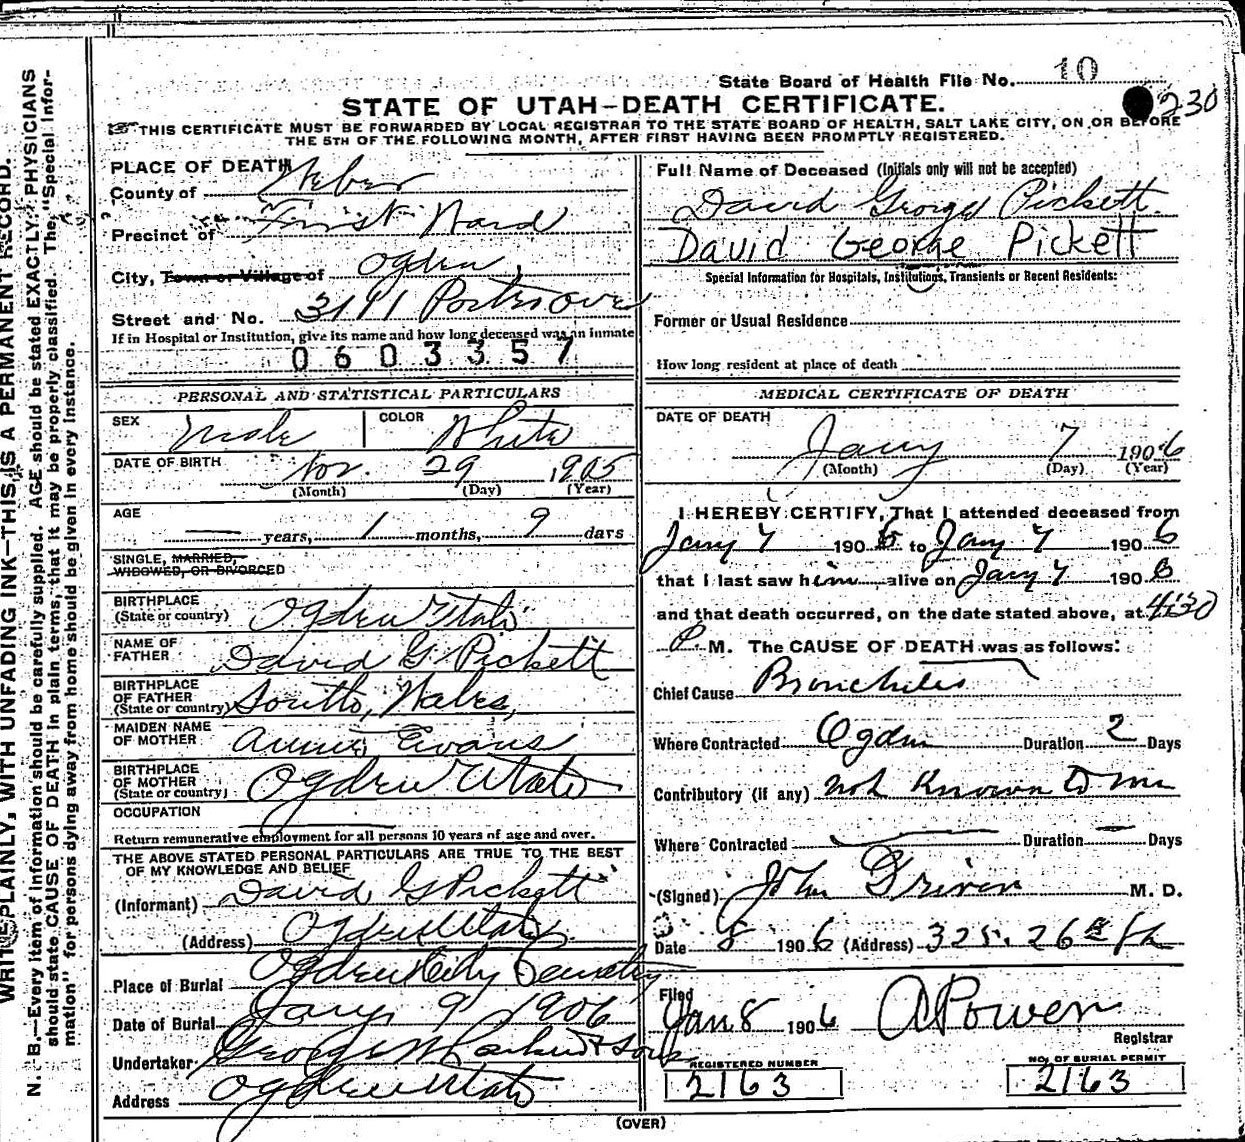 State Board of Health File No. 10
230
STATE OF UTAH—DEATH CERTIFICATE.
THIS CERTIFICATE MUST BE FORWARDED BY LOCAL REGISTRAR TO THE STATE BOARD OF HEALTH, SALT LAKE CITY, ON OR BEFORE
THE 5TH OF THE FOLLOWING MONTH, AFTER FIRST HAVING BEEN PROMPTLY REGISTERED.
PLACE OF DEATH
County of Weber
Precinct of First Ward
City, Town or Village of Ogden,
Street and No. 3141
If in Hospital or Institution, give its name and how long deceased was an inmate
0603357
PERSONAL AND STATISTICAL PARTICULARS
SEX Male COLOR White
DATE OF BIRTH Nov. 29 1905
(Month) (Day) (Year)
AGE — years, 1 months, 9 days
SINGLE, MARRIED,
WIDOWED, OR DIVORCED
BIRTHPLACE
(State or country) Ogden Utah
NAME OF
FATHER David G. Pickett
BIRTHPLACE
OF FATHER
(State or country)
MAIDEN NAME
OF MOTHER Annie Evans
BIRTHPLACE
OF MOTHER
(State or country) Ogden Utah
OCCUPATION
Return remunerative employment for all persons 10 years of age and over.
THE ABOVE STATED PERSONAL PARTICULARS ARE TRUE TO THE BEST
OF MY KNOWLEDGE AND BELIEF
(Informant) David G Pickett
(Address) Ogden Utah
Place of Burial Ogden City Cemetery
Date of Burial Jany 9 1906
Undertaker George W Larkin & Sons
Address Ogden Utah
Full Name of Deceased (Initials only will not be accepted)
David George Pickett
David George Pickett
Special Information for Hospitals, Institutions, Transients or Recent Residents:
Former or Usual Residence
How long resident at place of death
MEDICAL CERTIFICATE OF DEATH
DATE OF DEATH
Jany 7 1906
(Month) (Day) (Year)
I HEREBY CERTIFY, That I attended deceased from
Jany 7 1906 to Jany 7 1906
that I last saw him alive on Jany 7 1906
and that death occurred, on the date stated above, at 4:30
P. M. The CAUSE OF DEATH was as follows:
Chief Cause Bronchitis
Where Contracted Ogden Duration 2 Days
Contributory (if any) not known to me
Where Contracted Duration — Days
(Signed) John Driven M. D.
Date 8 1906 (Address) 325. 26th
Filed
Jan 8 1906 A Power
Registrar
REGISTERED NUMBER
2163
NO. OF BURIAL PERMIT
2163
(OVER)
WRITE PLAINLY, WITH UNFADING INK—THIS IS A PERMANENT RECORD.
N. B.—Every item of information should be carefully supplied. AGE should be stated EXACTLY. PHYSICIANS
should state CAUSE OF DEATH in plain terms, that it may be properly classified. The "Special Infor-
mation" for persons dying away from home should be given in every instance.